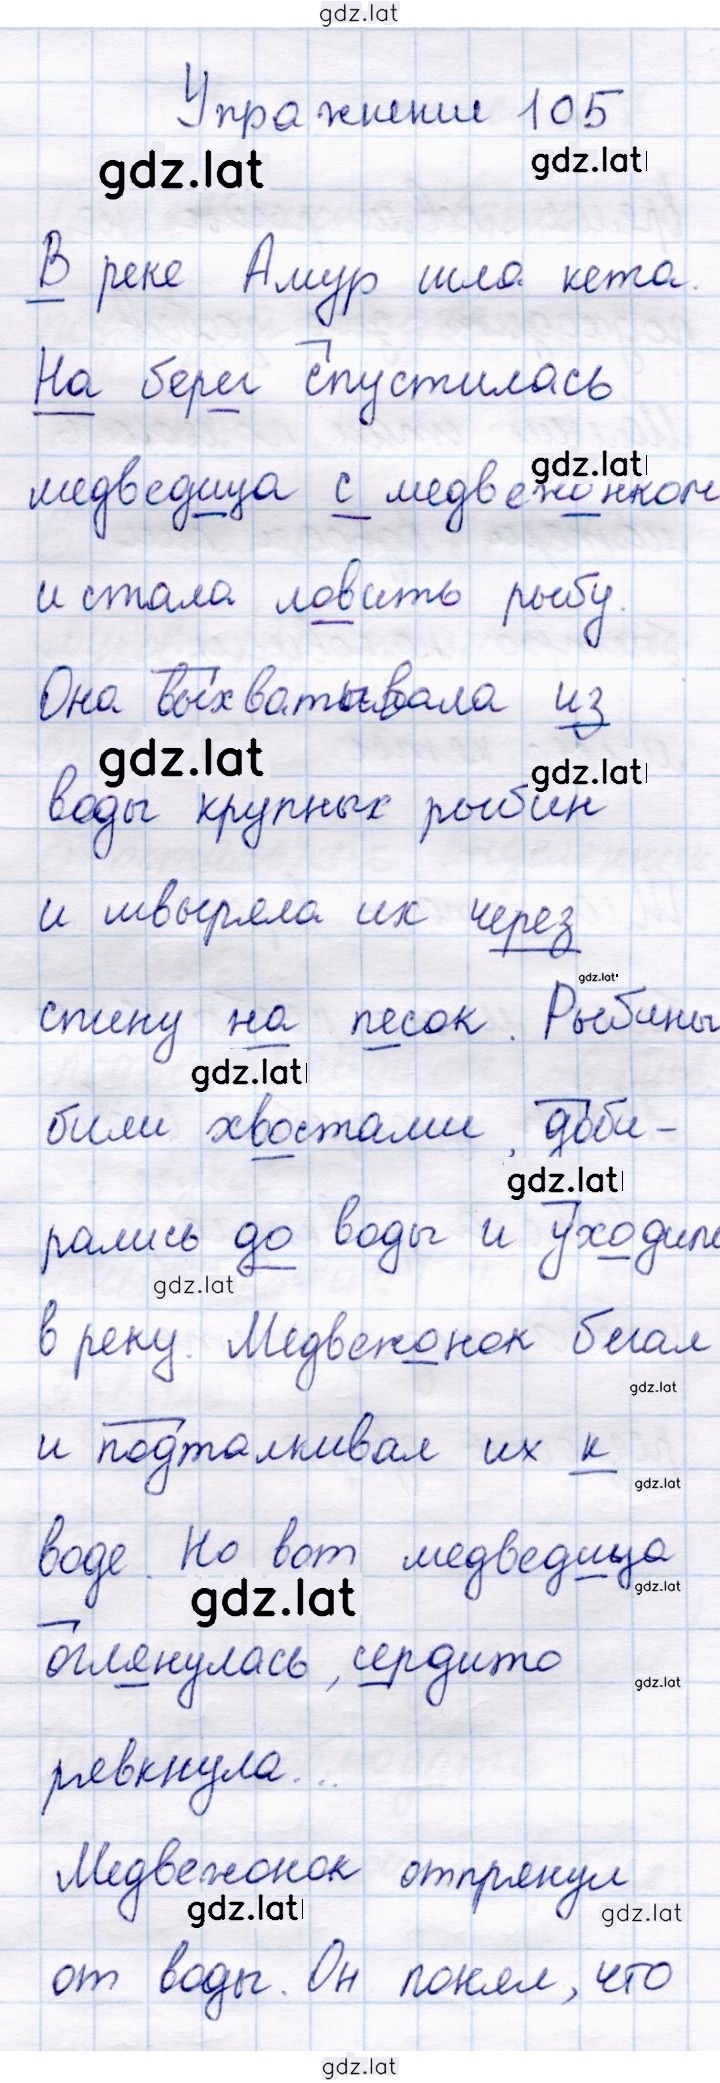 gdz.lat
Упражнение 105
gdz.lat gdz.lat
В реке Амур шла кета.
На берег спустилась
gdz.lat
медведица с медвежонком
и стала ловить рыбу.
Она выхватывала из
gdz.lat gdz.lat
воды крупных рыбин
и швыряла их через
gdz.lat
спину на песок. Рыбины
gdz.lat
били хвостами, доби-
gdz.lat
рались до воды и уходили
gdz.lat
в реку. Медвежонок бегал
gdz.lat
и подталкивал их к
gdz.lat
воде. Но вот медведица
gdz.lat gdz.lat
оглянулась, сердито
gdz.lat
рявкнула...
Медвежонок отпрянул
gdz.lat gdz.lat
от воды. Он понял, что
gdz.lat